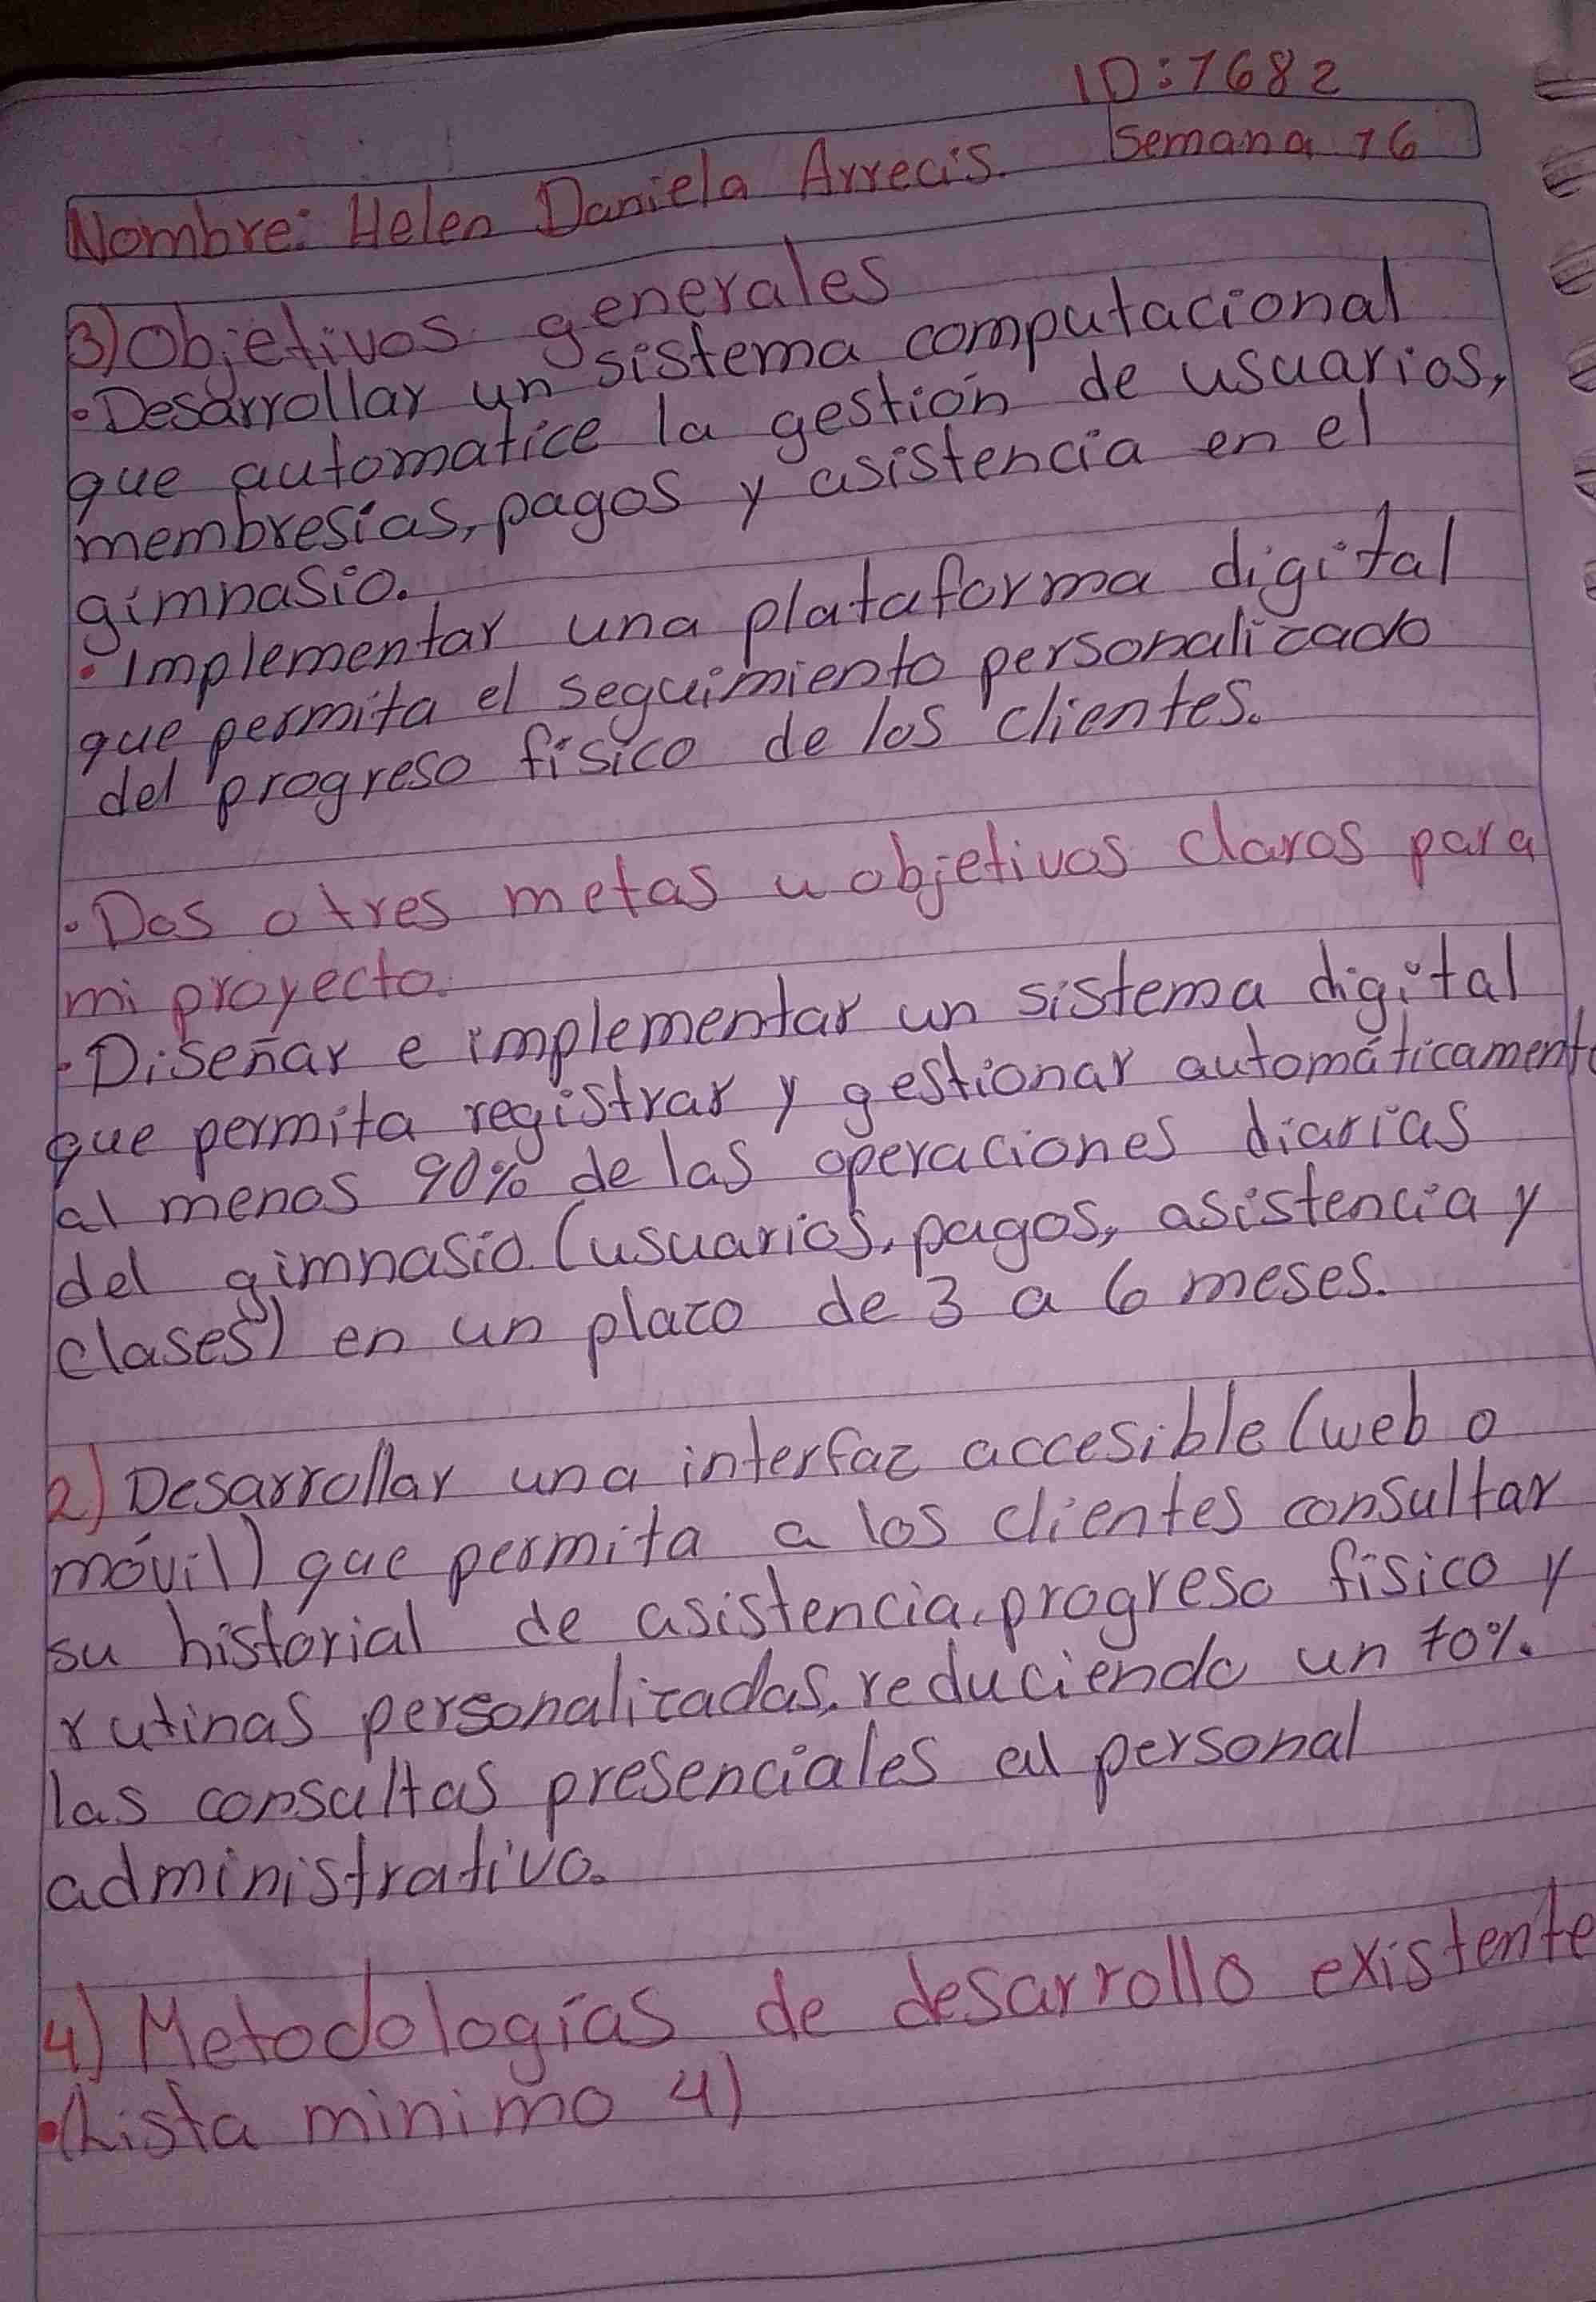 ID:1682
Semana 16
Nombre: Helen Daniela Arrecis.
3) Objetivos generales
• Desarrollar un sistema computacional
que automatice la gestión de usuarios,
membresías, pagos y asistencia en el
gimnasio.
• Implementar una plataforma digital
que permita el seguimiento personalizado
del progreso físico de los clientes.
• Dos o tres metas u objetivos claros para
mi proyecto.
• Diseñar e implementar un sistema digital
que permita registrar y gestionar automáticamente
al menos 90% de las operaciones diarias
del gimnasio (usuarios, pagos, asistencia y
clases) en un plazo de 3 a 6 meses.
2) Desarrollar una interfaz accesible (web o
móvil) que permita a los clientes consultar
su historial de asistencia, progreso físico y
rutinas personalizadas, reduciendo un 70%.
las consultas presenciales al personal
administrativo.
4) Metodologías de desarrollo existente
• (Lista minimo 4)